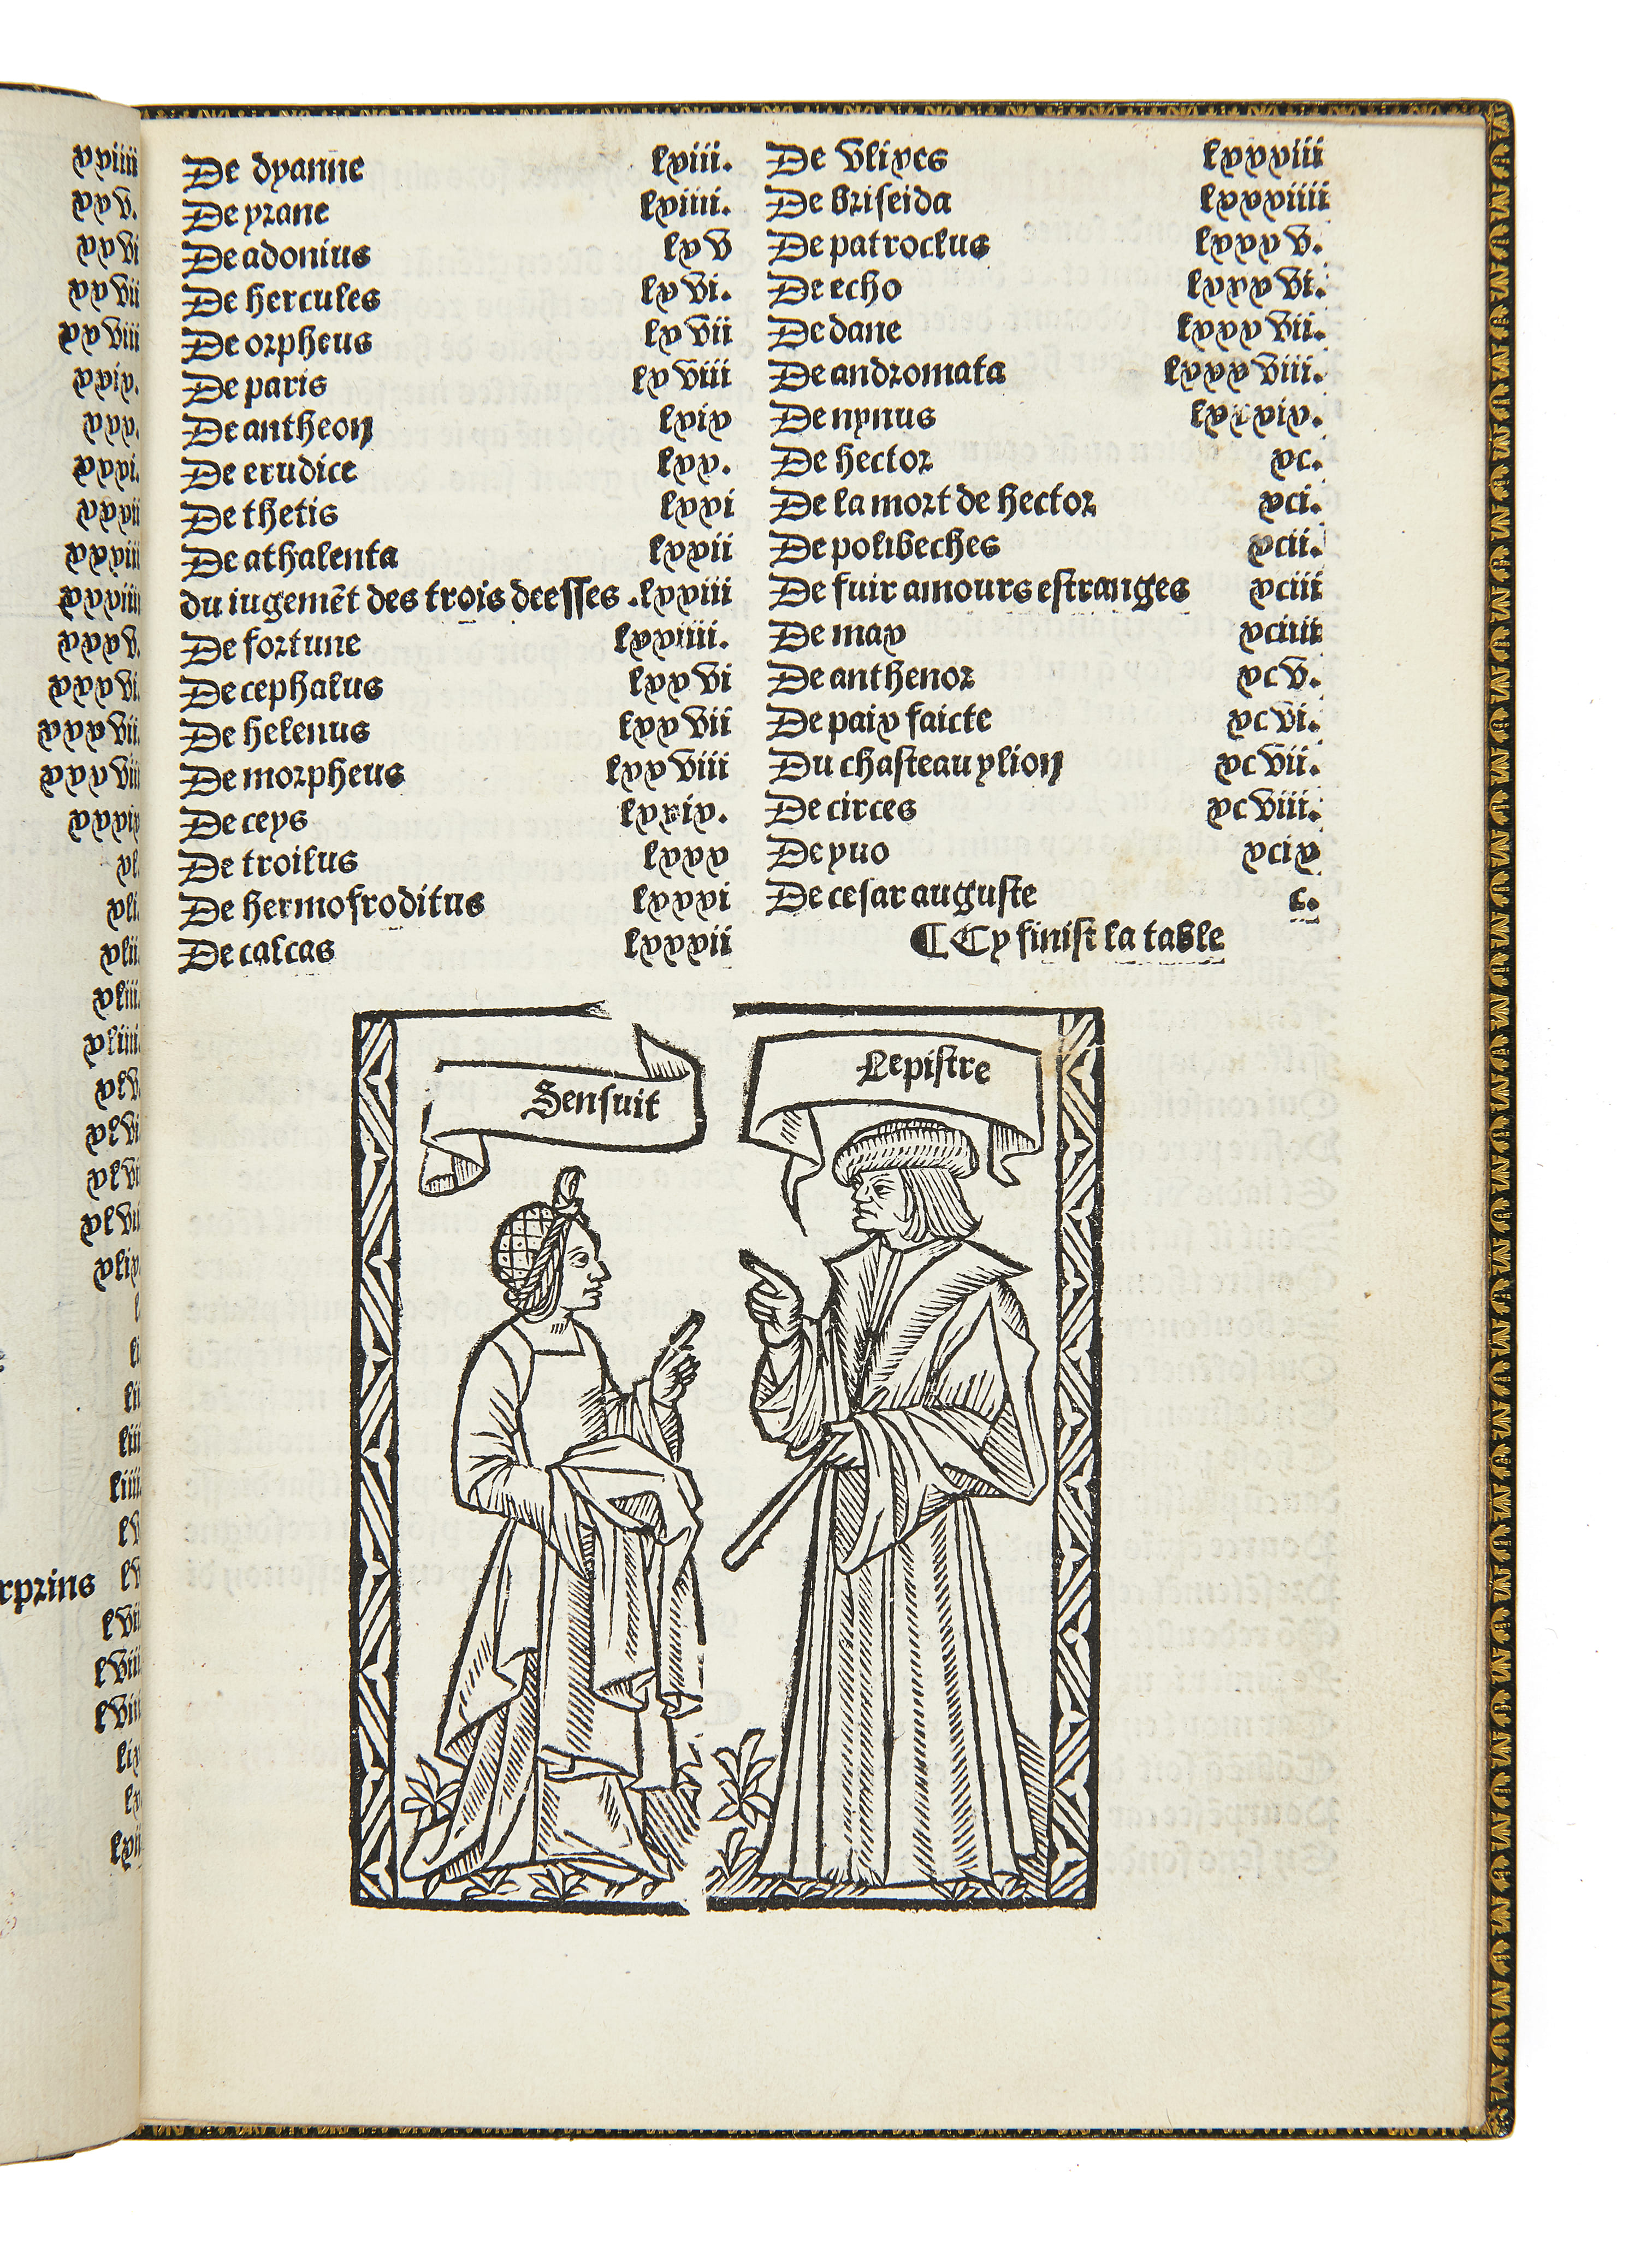 xxiiii
xxv.
xxvi
xxvii
xxviii
xxix.
xxx.
xxxi.
xxxii
xxxiii
xxxiiii
xxxv.
xxxvi
xxxvii
xxxviii
xxxix
xl
xli
xlii
xliii
xliiii
rprins
De dyanne lxiii.
De yrane lxiiii.
De adonius lxv
De hercules lxvi.
De orpheus lxvii
De paris lxviii
De antheon lxix
De erudice lxx.
De thetis lxxi
De athalenta lxxii
du iugemẽt des trois deesses .lxxiii
De fortune lxxiiii.
De cephalus lxxvi
De helenus lxxvii
De morpheus lxxviii
De ceys lxxix.
De troilus lxxx
De hermofroditus lxxxi
De calcas lxxxii
De vlixes lxxxiii
De briseida lxxxiiii
De patroclus lxxxv.
De echo lxxxvi.
De dane lxxxvii.
De andromata lxxxviii.
De nynus lxxxix.
De hector xc.
De la mort de hector xci.
De polibeches xcii.
De fuir amours estranges xciii
De max xciiii
De anthenor xcv.
De paix faicte xcvi.
Du chasteau ylion xcvii.
De circes xcviii.
De yuo xcix
De cesar auguste c.
¶ Cy finist la table
Sensuit
Lepistre